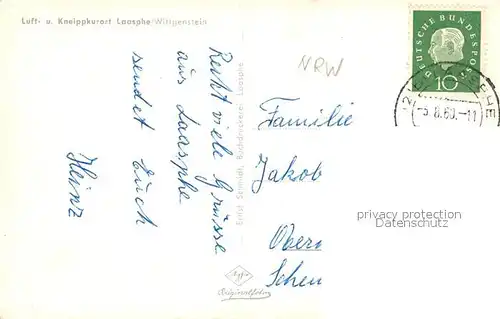 Luft- u. Kneippkurort Laasphe-Wittgenstein
Recht viele Grüsse
aus Laasphe
sendet Euch
Heinz
Ernst Schmidt, Buchdruckerei, Laasphe
NRW
DEUTSCHE BUNDESPOST
10
-5.8.60.-11
Familie
Jakob
Obern
Sehen
privacy protection
Datenschutz
Agfa
Originalfoto